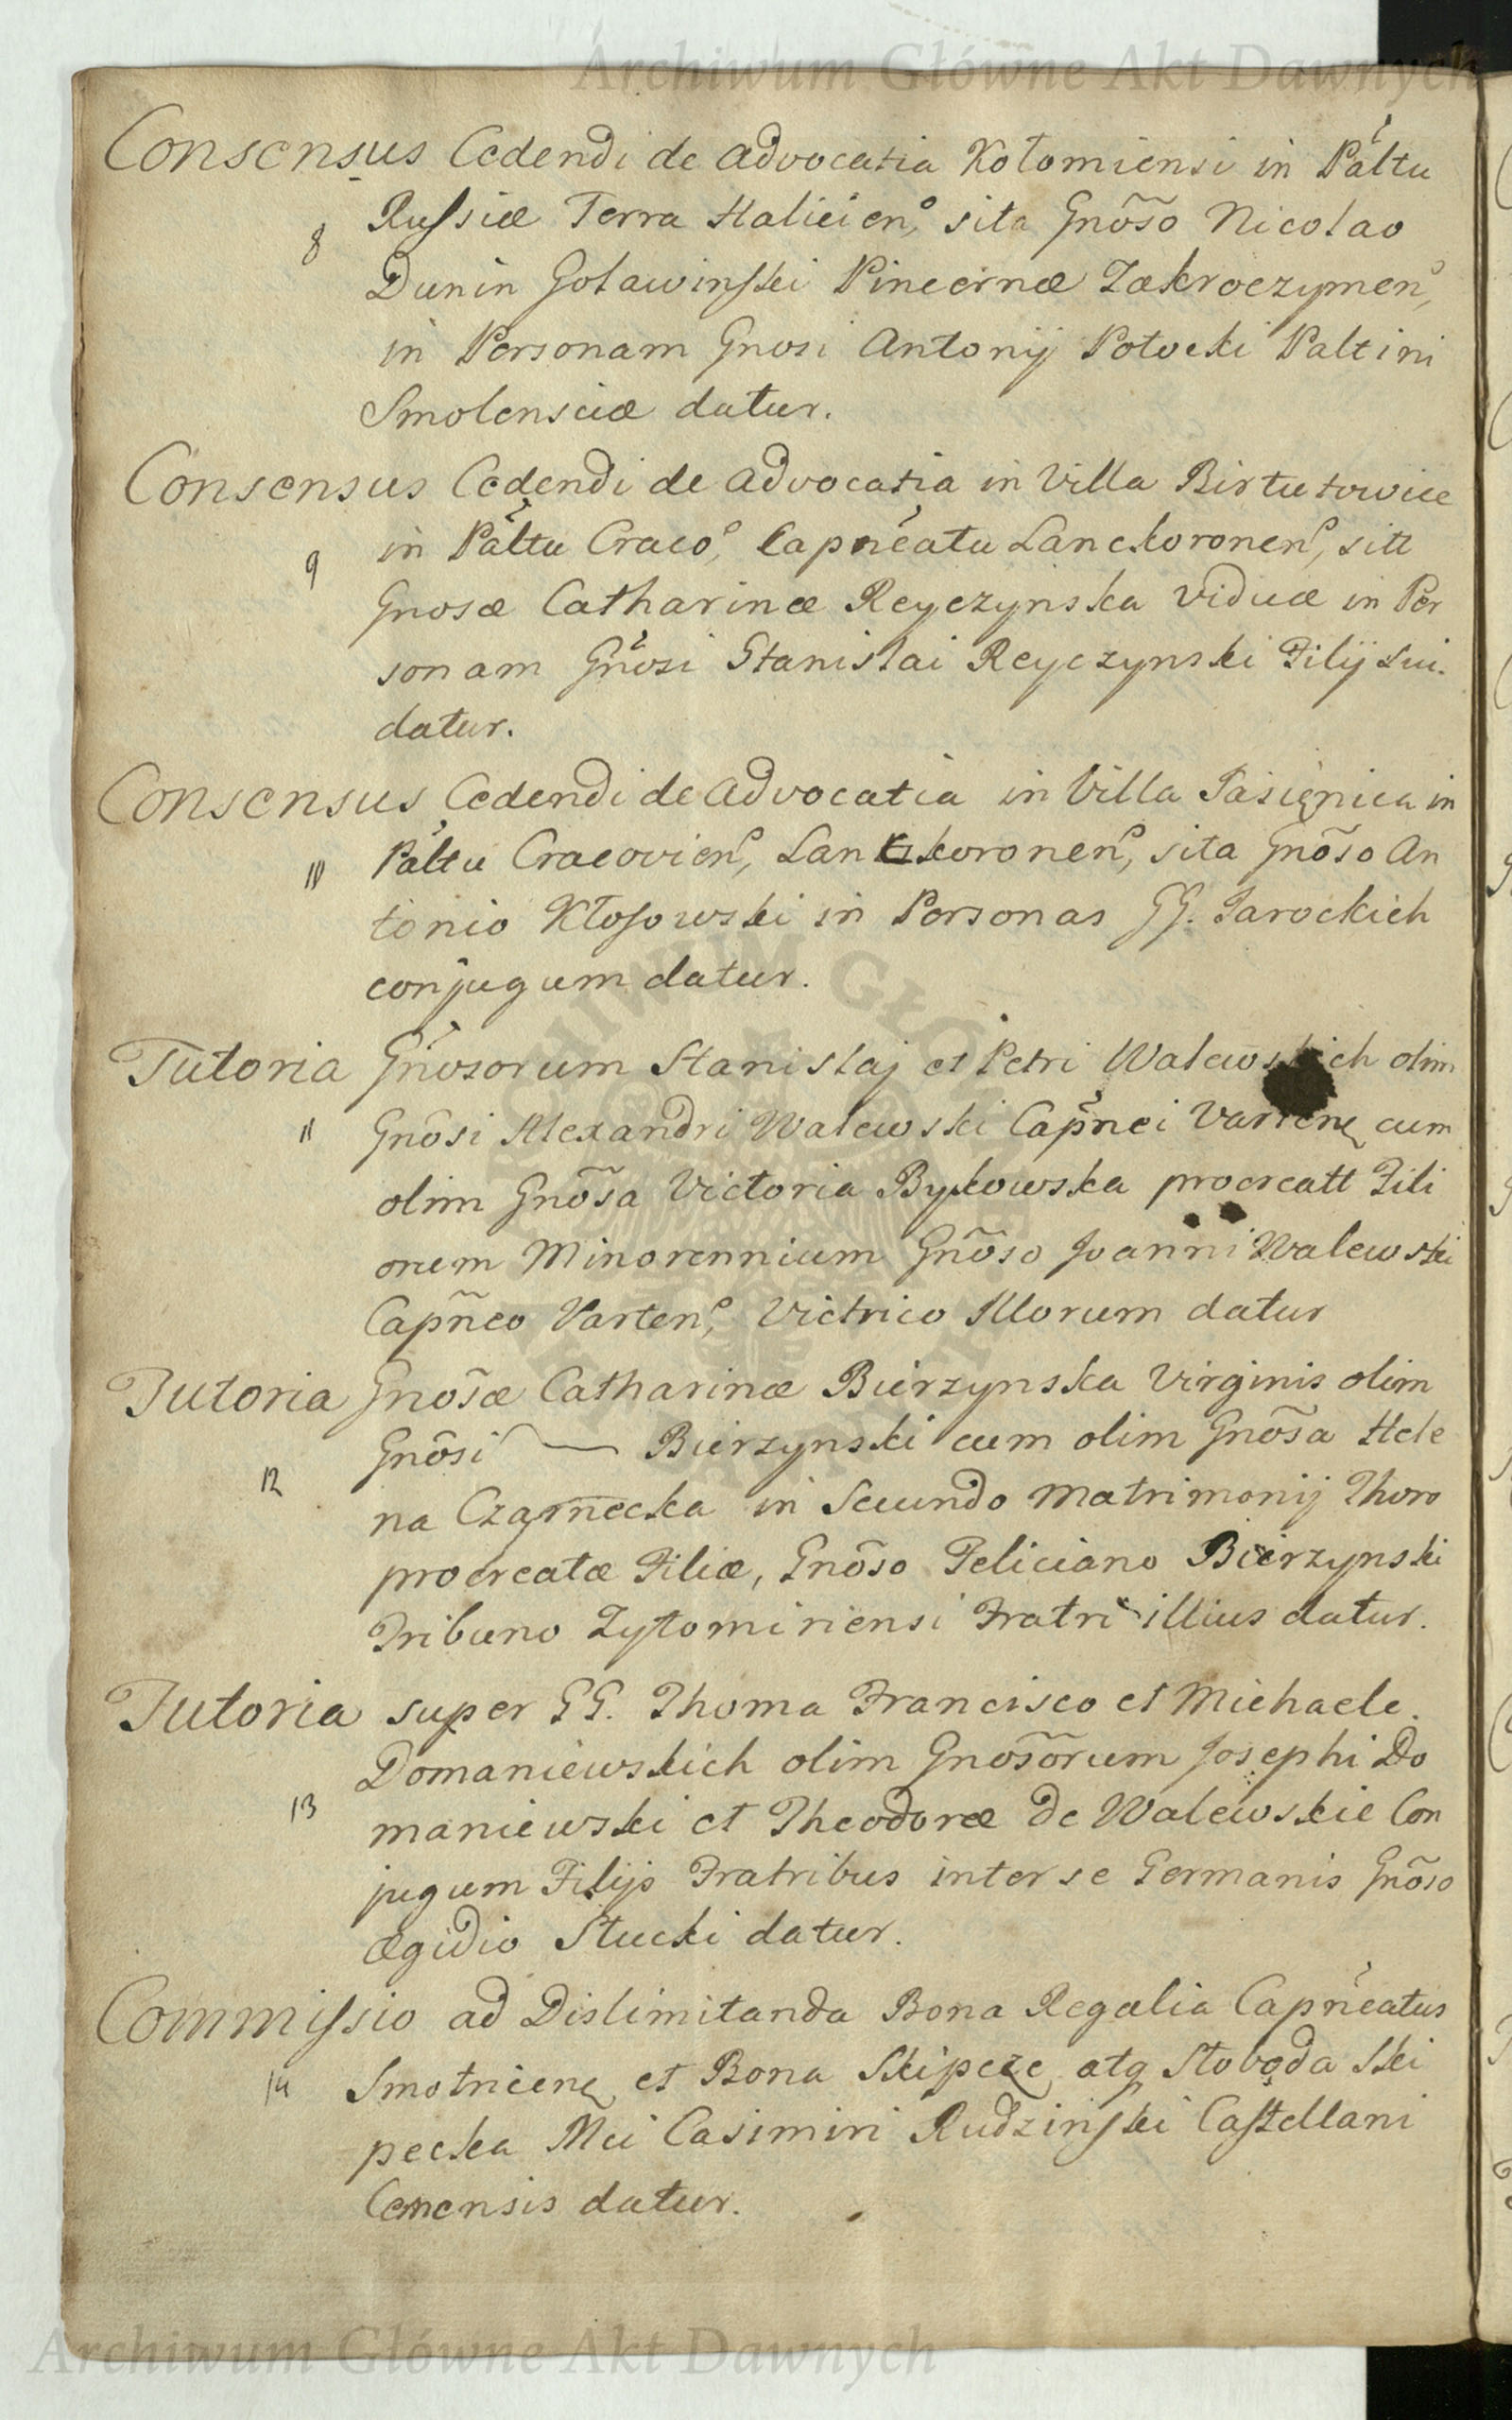 Archiwum Główne Akt Dawnych
Consensus Cedendi de Advocatia Kołomiensi in Paltu
8 Russiæ Terra Halicien, sita Gnõso Nicolao
Dunin Goławinski Pincernæ Zakroczymen,
in Personam Gnosi Antonij Potocki Paltini
Smolensciæ datur.
Consensus Cedendi de Advocatia in Villa Birtutowice
9 in Paltu Craco, Capneatu Lanckoronen, sitt
Gnosæ Catharinæ Reyczynska Viduæ in Per
sonam Gnosi Stanislai Reyczynski Filij Sui.
datur.
Consensus Cedendi de Advocatia in Villa Jasięnica in
10 Paltu Cracovien, Lanckoronen, sita Gnõso An
tonio Kłosowski in Personas GG. Jarockich
conjugum datur.
Tutoria Gnosorum Stanislaj et Petri Walewskich olim
11 Gnõsi Alexandri Walewski Capnei Varten cum
olim Gnõsa Victoria Bykowska procreatt Fili
orum Minorennium Gnõso Joanni Walewski
Capñeo Varten, Victrico Illorum datur
Tutoria Gnõsæ Catharinæ Bierzynska Virginis olim
Gnõsi — Bierzynski cum olim Gnõsa Hele
12 na Czarnecka in Secundo Matrimonij Thoro
procreatæ Filiæ, Gnõso Feliciano Bierzynski
Tribuno Zytomiriensi Fratri illius datur.
Tutoria super GG. Thoma Francisco et Michaele.
Domaniewskich olim Gnosõrum Josephi Do
13 maniewski et Theodoræ de Walewskie Con
jugum Filijs Fratribus inter se Germanis Gnõso
Ægidio Stucki datur.
Commissio ad Dislimitanda Bona Regalia Capneatus
14 Smotricen et Bona Skipcze atq Słoboda Ski
pecka Mci Casimiri Rudzinski Castellani
Cernensis datur.
Archiwum Główne Akt Dawnych